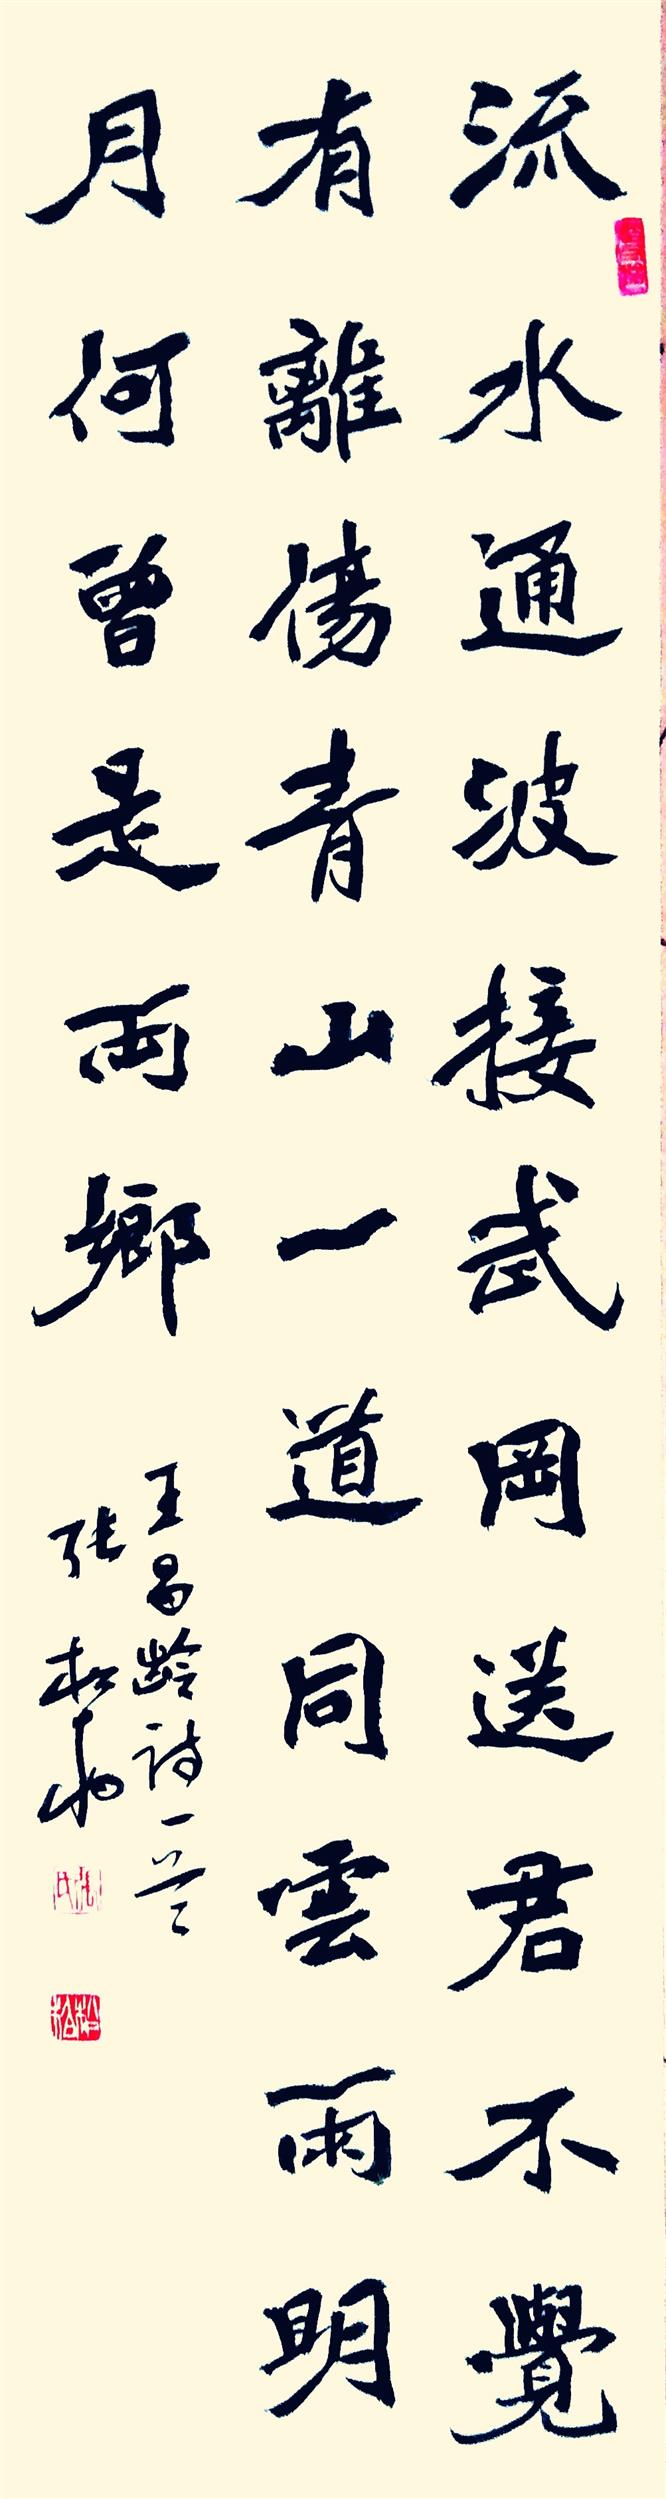 流水通波接武岡送君不覺
有離傷青山一道同雲雨明
月何曾是兩鄉
王昌齡詩一首
張